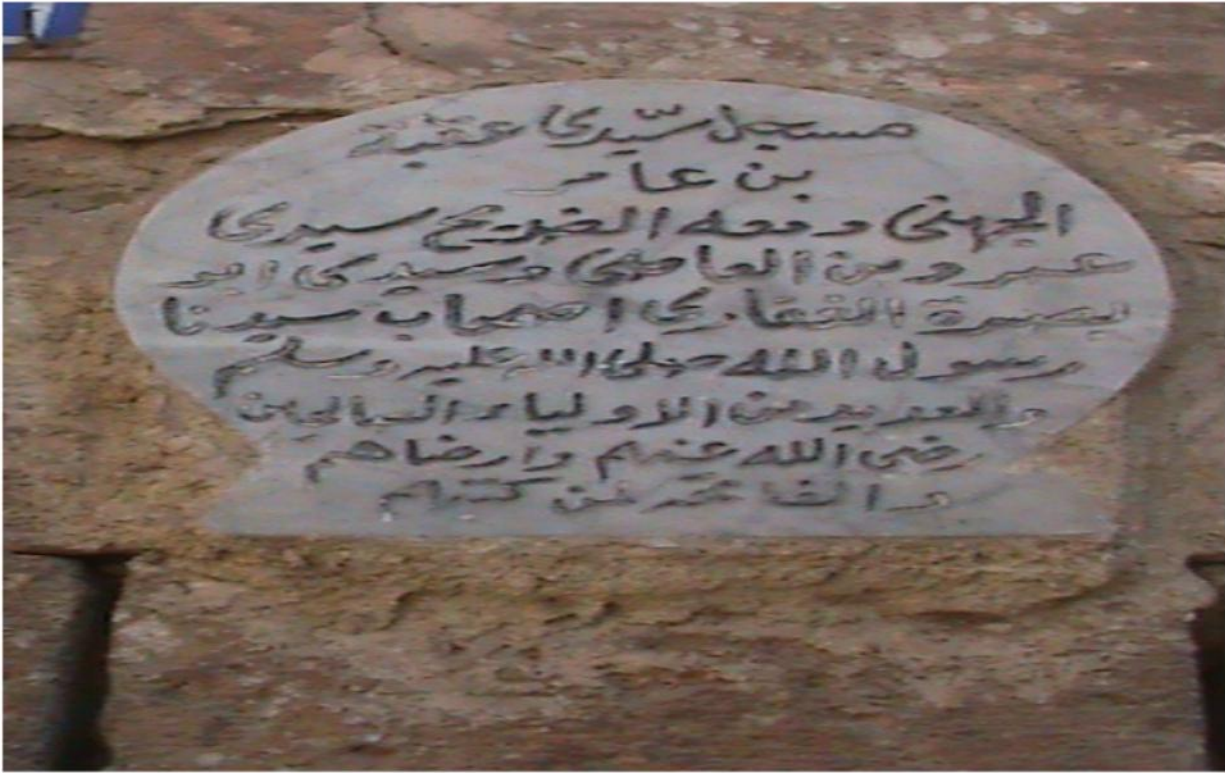 مسجد سيّدى عقبة
بن عامر
الجهنى ومعه الضريح سيدى
عمرو بن العاص وسيدى ابو
بصرة الغفارى اصحاب سيدنا
رسول الله صلى الله عليه وسلم
والعديد من الاولياء الصالحين
رضى الله عنهم وارضاهم